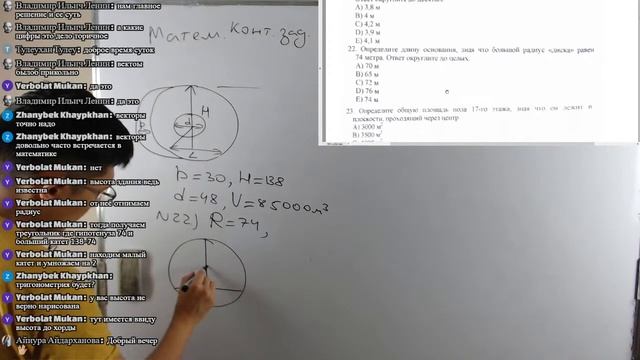 Владимир Ильич Ленин: нам главное
решение и её суть
Владимир Ильич Ленин: а какие
цифры это дело торичное
Тулеухан Тулеу: доброе время суток
Владимир Ильич Ленин: вектоы
былоб прикольно
Yerbolat Mukan: да это
Владимир Ильич Ленин: да это
Zhanybek Khaypkhan: векторы
точно надо
Zhanybek Khaypkhan: векторы
довольно часто встречается в
математике
Yerbolat Mukan: нет
Yerbolat Mukan: высота здания ведь
известна
Yerbolat Mukan: от неё отнимаем
радиус
Yerbolat Mukan: тогда получаем
треугольник где гипотенуза 74 и
больший катет 138-74
Yerbolat Mukan: находим малый
катет и умножаем на 2
Zhanybek Khaypkhan: тригонометрия будет?
Yerbolat Mukan: у вас высота не
верно нарисована
Yerbolat Mukan: тут имеется ввиду
высота до хорды
Айнура Айдарханова: Добрый вечер
Матем. Конт. зад.
H
b
d
L
b=30, H=138
d=48, V=85000м³
N22) R=74,
A) 3,8 м
B) 4 м
C) 4,2 м
D) 3,9 м
E) 4,1 м
22. Определите длину основания, зная что большой радиус «диска» равен
74 метра. Ответ округлите до целых.
A) 70 м
B) 65 м
C) 72 м
D) 76 м
E) 74 м
23. Определите общую площадь пола 17-го этажа, зная что он лежит в
плоскости, проходящей через центр
A) 3000 м²
B) 3500 м²